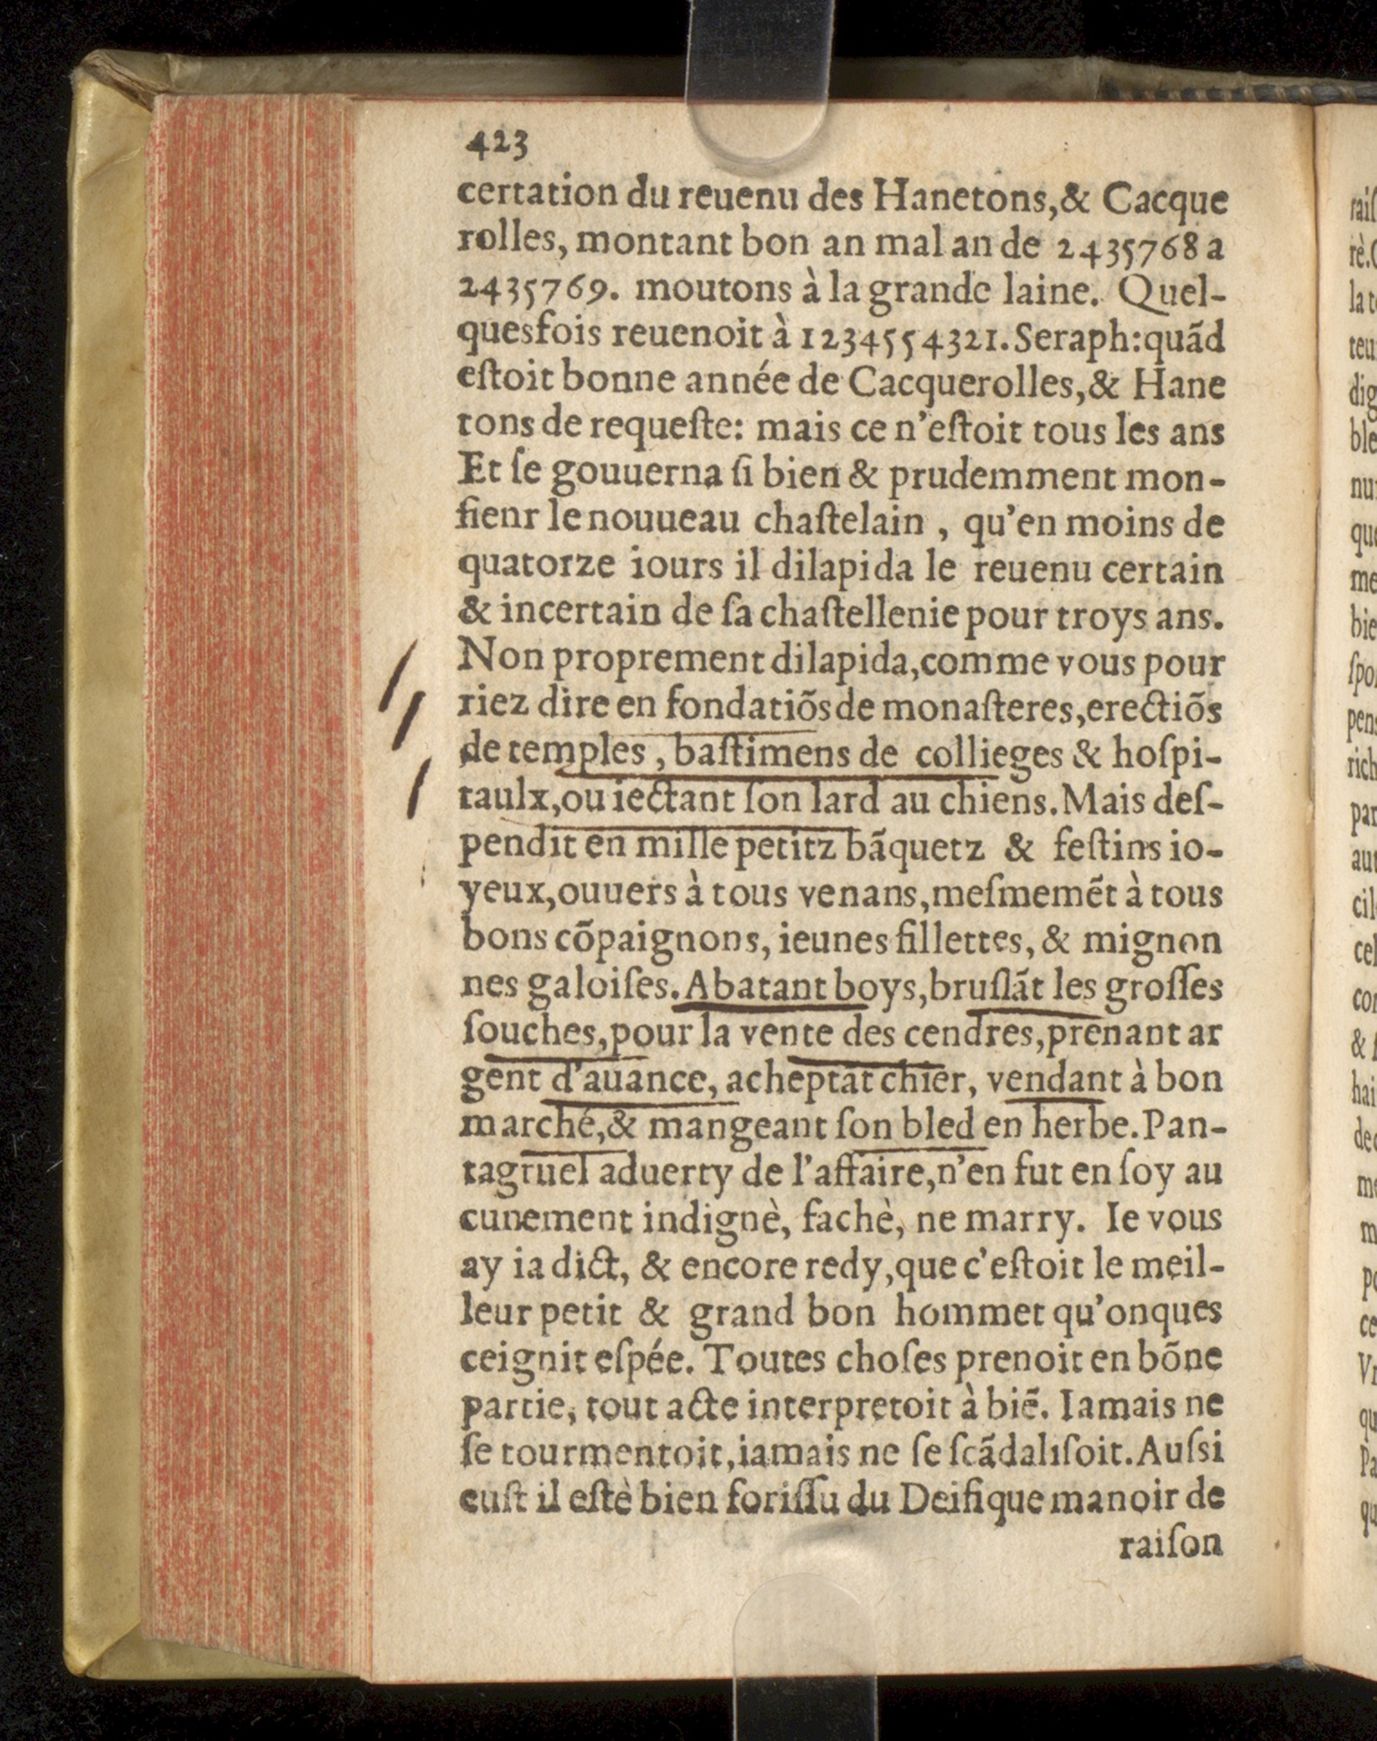 423
certation du reuenu des Hanetons,& Cacque
rolles, montant bon an mal an de 2435768 a
2435769. moutons à la grande laine. Quel-
quesfois reuenoit à 1234554321. Seraph: quãd
eſtoit bonne année de Cacquerolles,& Hane
tons de requeſte: mais ce n'eſtoit tous les ans
Et ſe gouuerna ſi bien & prudemment mon-
ſienr le nouueau chaſtelain , qu'en moins de
quatorze iours il dilapida le reuenu certain
& incertain de ſa chaſtellenie pour troys ans.
Non proprement dilapida,comme vous pour
riez dire en fondatiõs de monaſteres,erectiõs
de temples , baſtimens de collieges & hoſpi-
taulx,ou iectant ſon lard au chiens. Mais deſ-
pendit en mille petitz bãquetz & feſtins io-
yeux,ouuers à tous venans,meſmemẽt à tous
bons cõpaignons, ieunes fillettes, & mignon
nes galoiſes. Abatant boys,bruſlãt les groſſes
ſouches,pour la vente des cendres,prenant ar
gent d'auance, acheptãt chier, vendant à bon
marché,& mangeant ſon bled en herbe. Pan-
tagruel aduerty de l'affaire,n'en fut en ſoy au
cunement indignè, fachè, ne marry. Ie vous
ay ia dict, & encore redy,que c'eſtoit le meil-
leur petit & grand bon hommet qu'onques
ceignit eſpée. Toutes choſes prenoit en bõne
partie, tout acte interpretoit à biẽ. Iamais ne
ſe tourmentoit,iamais ne ſe ſcãdaliſoit. Auſsi
euſt il eſtè bien foriſſu du Deifique manoir de
raiſon